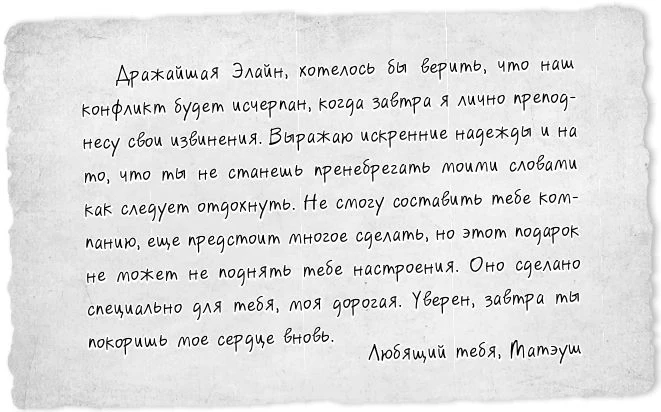 Дражайшая Элайн, хотелось бы верить, что наш
конфликт будет исчерпан, когда завтра я лично препод-
несу свои извинения. Выражаю искренние надежды и на
то, что ты не станешь пренебрегать моими словами
как следует отдохнуть. Не смогу составить тебе ком-
панию, еще предстоит многое сделать, но этот подарок
не может не поднять тебе настроения. Оно сделано
специально для тебя, моя дорогая. Уверен, завтра ты
покоришь мое сердце вновь.
Любящий тебя, Матэуш